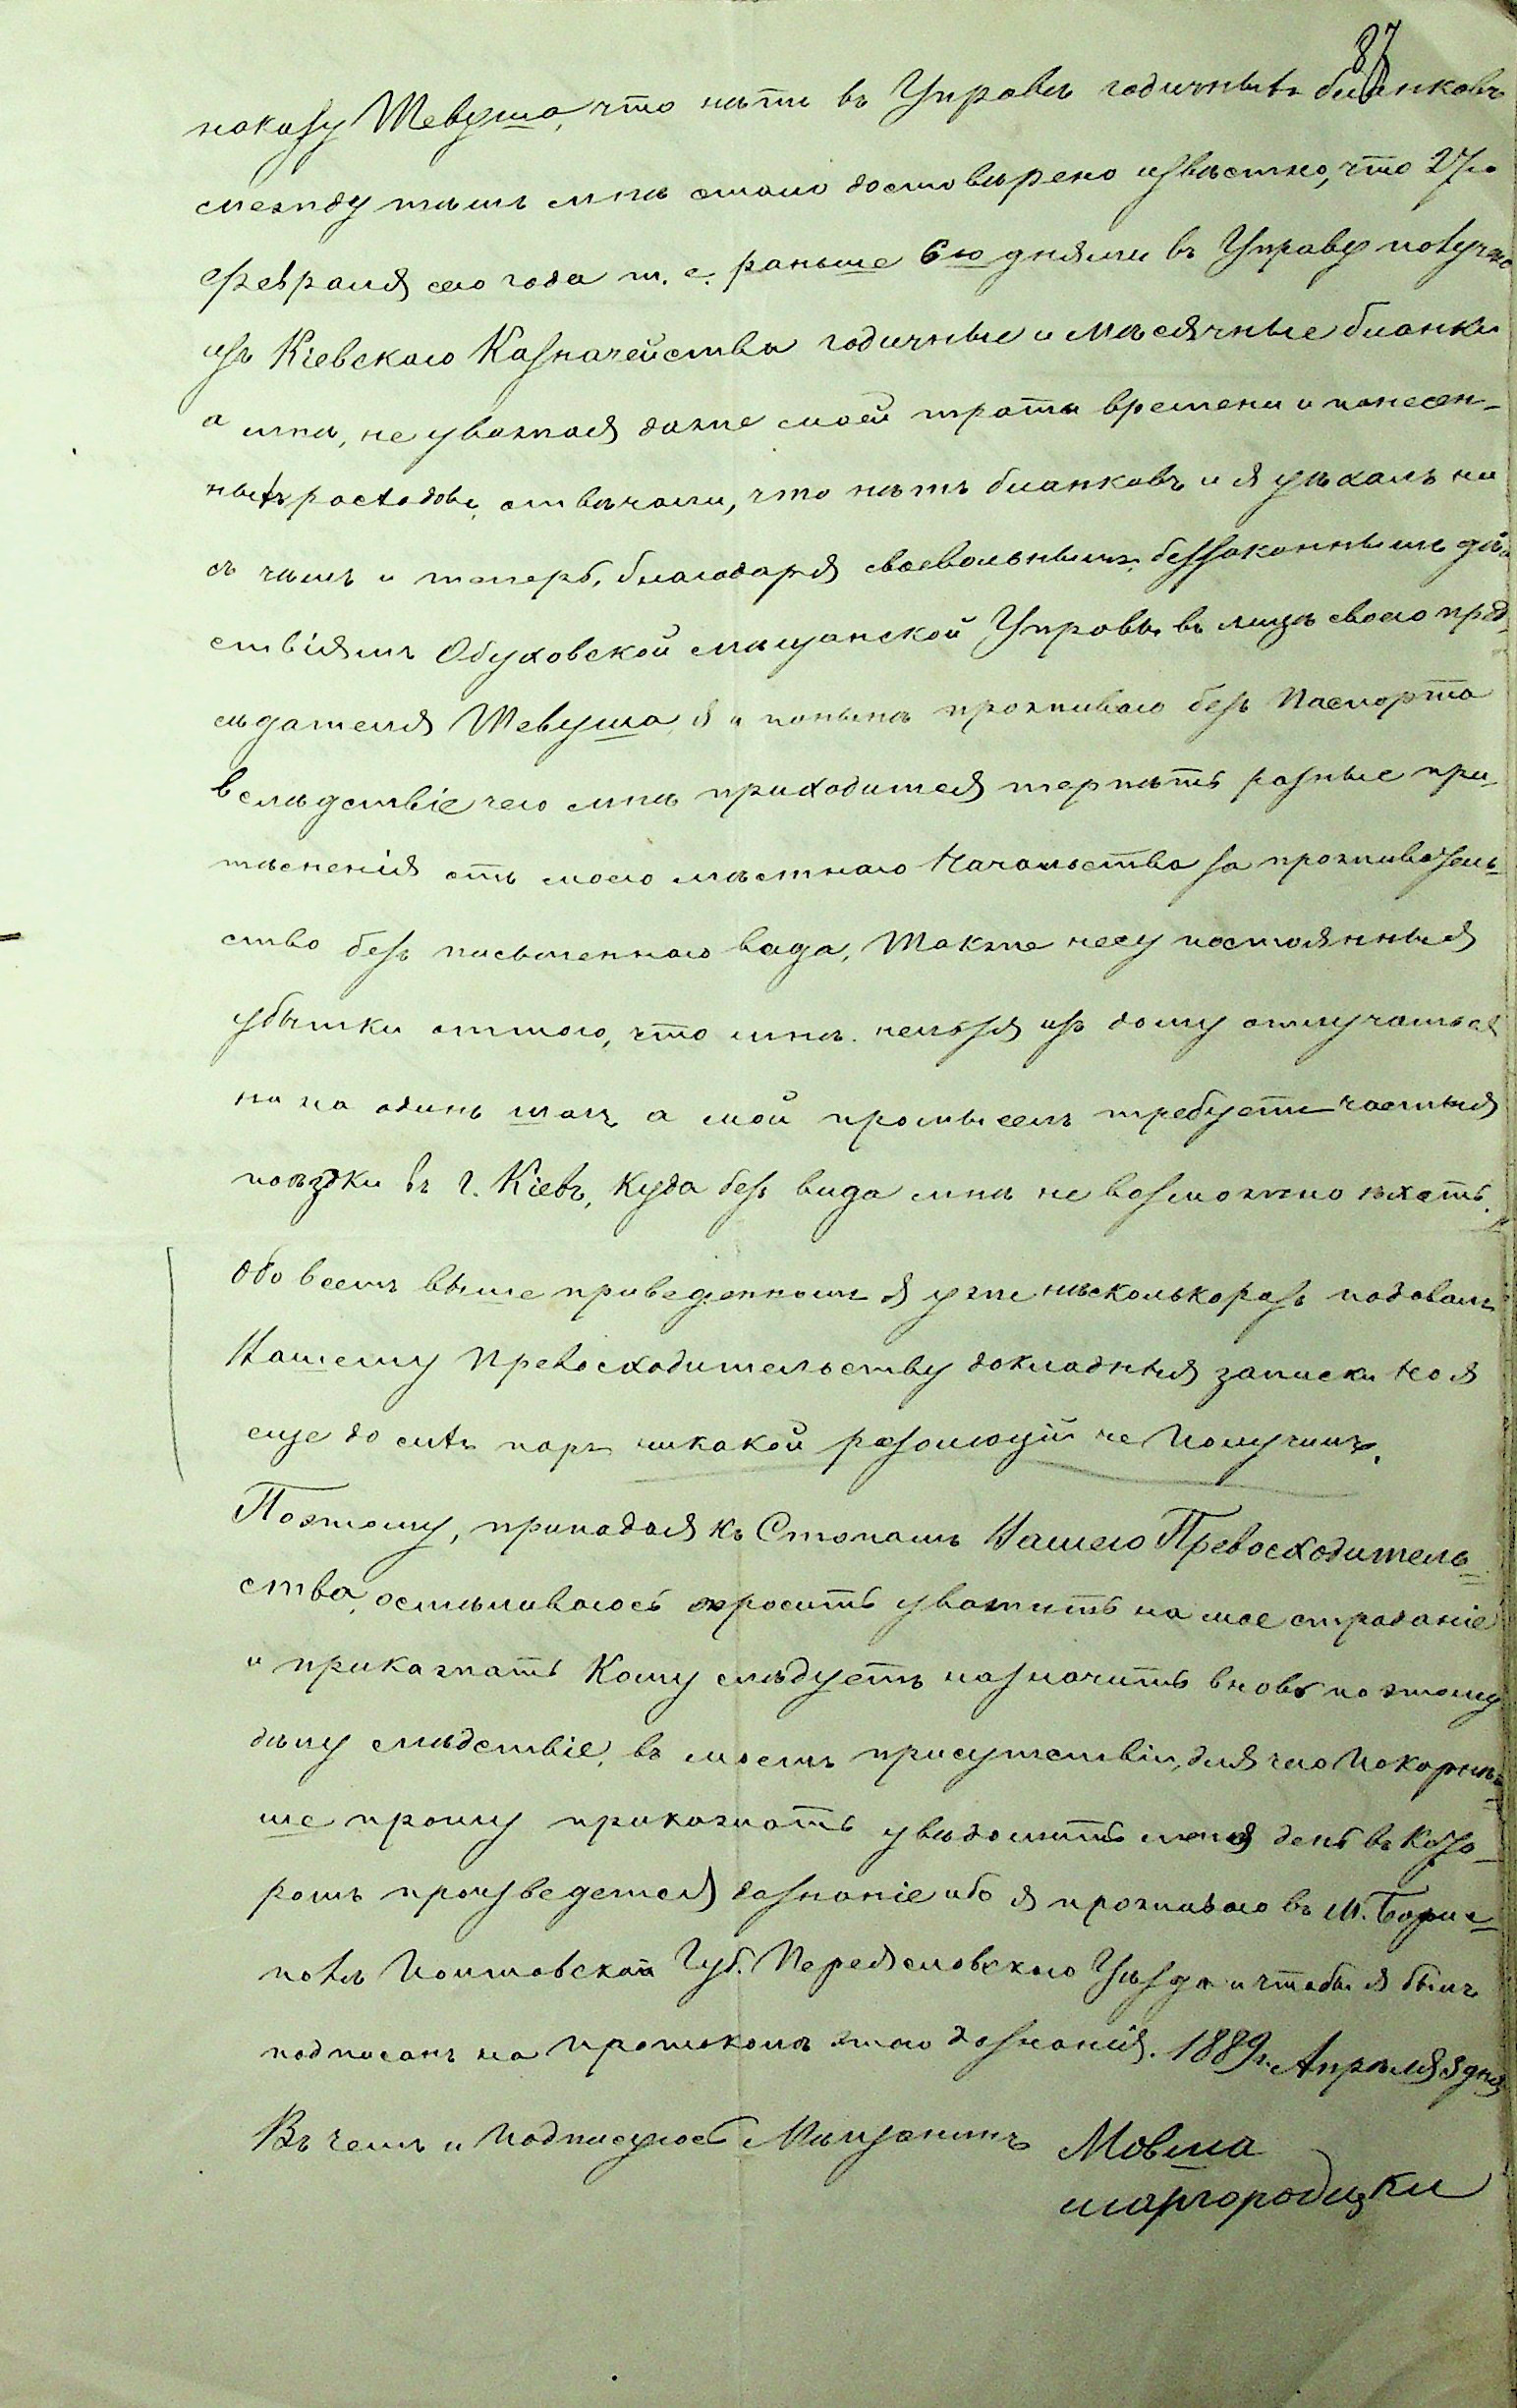 87
показу Шевуша, что нѣтъ въ Управѣ годичныхъ бланковъ
между тѣмъ мнѣ стало достовѣрено извѣстно, что 27го
февраля сего года т. е. раньше 6ю днями въ Управу получено
изъ Кіевскаго Казначейства годичные и мѣсячные бланки
а мнѣ, не уважая даже моей траты времени и понесен-
ныхъ расходовъ, отвѣчали, что нѣтъ бланковъ и я уѣхалъ ни
съ чѣмъ и теперь, благодаря своевольнымъ, беззаконнымъ дѣй-
ствіямъ Обуховской мѣщанской Управы въ лицѣ своего пред-
сѣдателя Шевуша, я и понынѣ проживаю безъ Паспорта
вслѣдствіе чего мнѣ приходится терпѣть разные при-
тѣсненія отъ моего мѣстнаго Начальства за проживатель-
ство безъ писменнаго вида, Также несу постоянныя
убытки оттого, что мнѣ нельзя изъ дому отлучаться
ни на одинъ шагъ а мой промыселъ требуетъ частыя
поѣздки въ г. Кіевъ, куда безъ вида мнѣ не возможно ѣхать.
Обо всемъ выше приведенномъ я уже нѣсколько разъ подавалъ
Вашему Превосходительству докладныя записки но я
еще до сихъ поръ никакой резолюціи не получилъ.
Поэтому, припадая къ Стопамъ Вашего Превосходитель-
ства, осмѣливаюсь просить уважить на мое страданіе
и приказать Кому слѣдуетъ назначить вновь по этому
дѣлу слѣдствіе, въ моемъ присутствіи, для чего покорнѣй-
ше прошу приказать увѣдомить меня день въ кото-
ромъ произведется дознаніе ибо я проживаю въ м. Борис-
полѣ Полтавской Губ. Переяславскаго Уѣзда и чтобы я былъ
подписанъ на протоколѣ этаго дознанія. 1889г. Апрѣля дня
Въ чемъ и подписуюсь Мѣщанинъ Мовша
шаргородцки